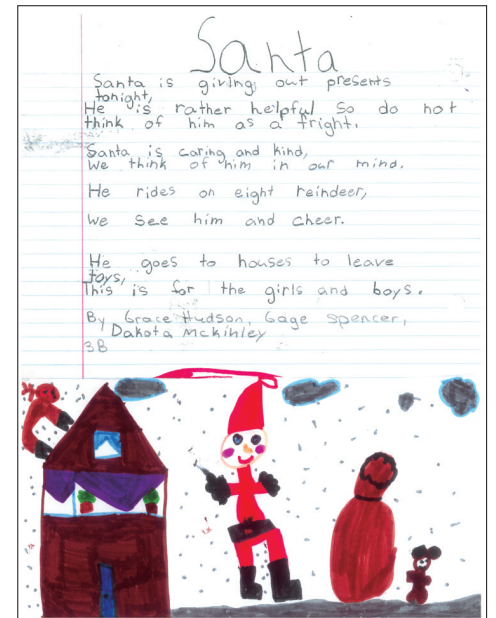 Santa
Santa is giving out presents
tonight,
He is rather helpful so do not
think of him as a fright.
Santa is caring and kind,
We think of him in our mind.
He rides on eight reindeer,
We see him and cheer.
He goes to houses to leave
toys,
This is for the girls and boys.
By Grace Hudson, Gage Spencer,
Dakota McKinley
3B